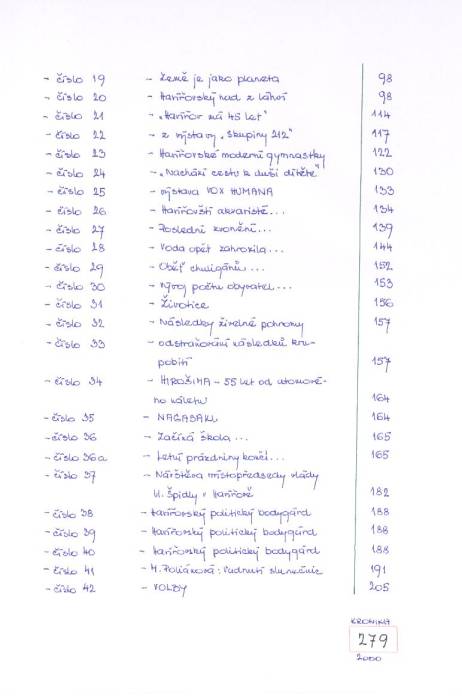 - číslo 19 - Země je jako planeta 98
- číslo 20 - Havířovský nud z láhví 98
- číslo 21 - „Havířov má 45 let" 114
- číslo 22 - z výstavy „Skupiny 212" 117
- číslo 23 - Havířovské moderní gymnastky 122
- číslo 24 - „Nachází cestu k duši dítěte" 130
- číslo 25 - výstava VOX HUMANA 133
- číslo 26 - Havířovští akvaristé... 134
- číslo 27 - Poslední zvonění... 139
- číslo 28 - Voda opět zahrozila... 144
- číslo 29 - Oběť chuligánů... 152
- číslo 30 - Vývoj počtu obyvatel... 153
- číslo 31 - Životice 156
- číslo 32 - Následky živelné pohromy 157
- číslo 33 - odstraňování následků kru-
pobití 157
- číslo 34 - HIROŠIMA - 55 let od atomové-
ho náletu 164
- číslo 35 - NAGASAKI 164
- číslo 36 - Začíná škola... 165
- číslo 36a - Letní prázdniny končí... 165
- číslo 37 - Návštěva místopředsedy vlády
Vl. Špidly v Havířově 182
- číslo 38 - Havířovský politický bodygárd 188
- číslo 39 - Havířovský politický bodygárd 188
- číslo 40 - Havířovský politický bodygárd 188
- číslo 41 - M. Poláková: Vadnutí slunečnic 191
- číslo 42 - VOLBY 205
KRONIKA
279
2000